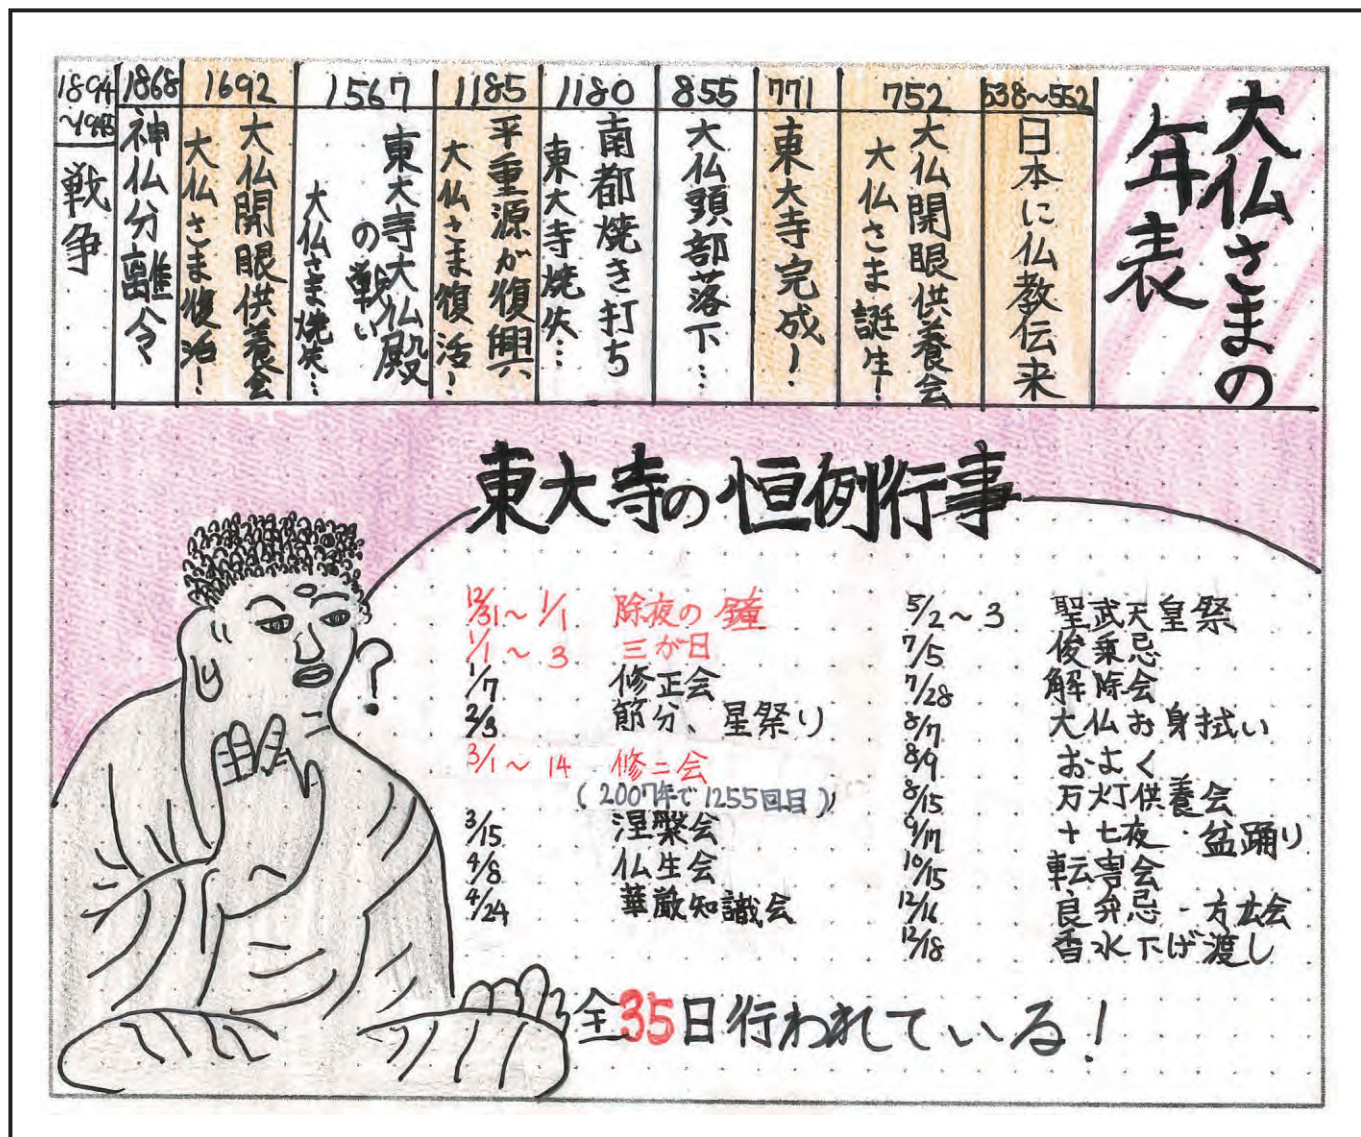 大仏さまの
年表
538~552
日本に仏教伝来
752
大仏開眼供養会
大仏さま誕生!
771
東大寺完成!
855
大仏頭部落下…
1180
南都焼き打ち
東大寺焼失…
1185
平重源が復興
大仏さま復活!
1567
東大寺大仏殿
の戦い
大仏さま焼失…
1692
大仏開眼供養会
大仏さま復活!
1868
神仏分離令
1894
~1945
戦争
東大寺の恒例行事
12/31~1/1 除夜の鐘
1/1~3 三が日
1/7 修正会
2/3 節分、星祭り
3/1~14 修二会
(2007年で1255回目)
3/15 涅槃会
4/8 仏生会
4/24 華厳知識会
5/2~3 聖武天皇祭
7/5 俊乗忌
7/28 解除会
8/7 大仏お身拭い
8/9 およく
8/15 万灯供養会
9/17 十七夜・盆踊り
10/15 転害会
12/16 良弁忌・方広会
12/18 香水下げ渡し
?
全35日行われている!